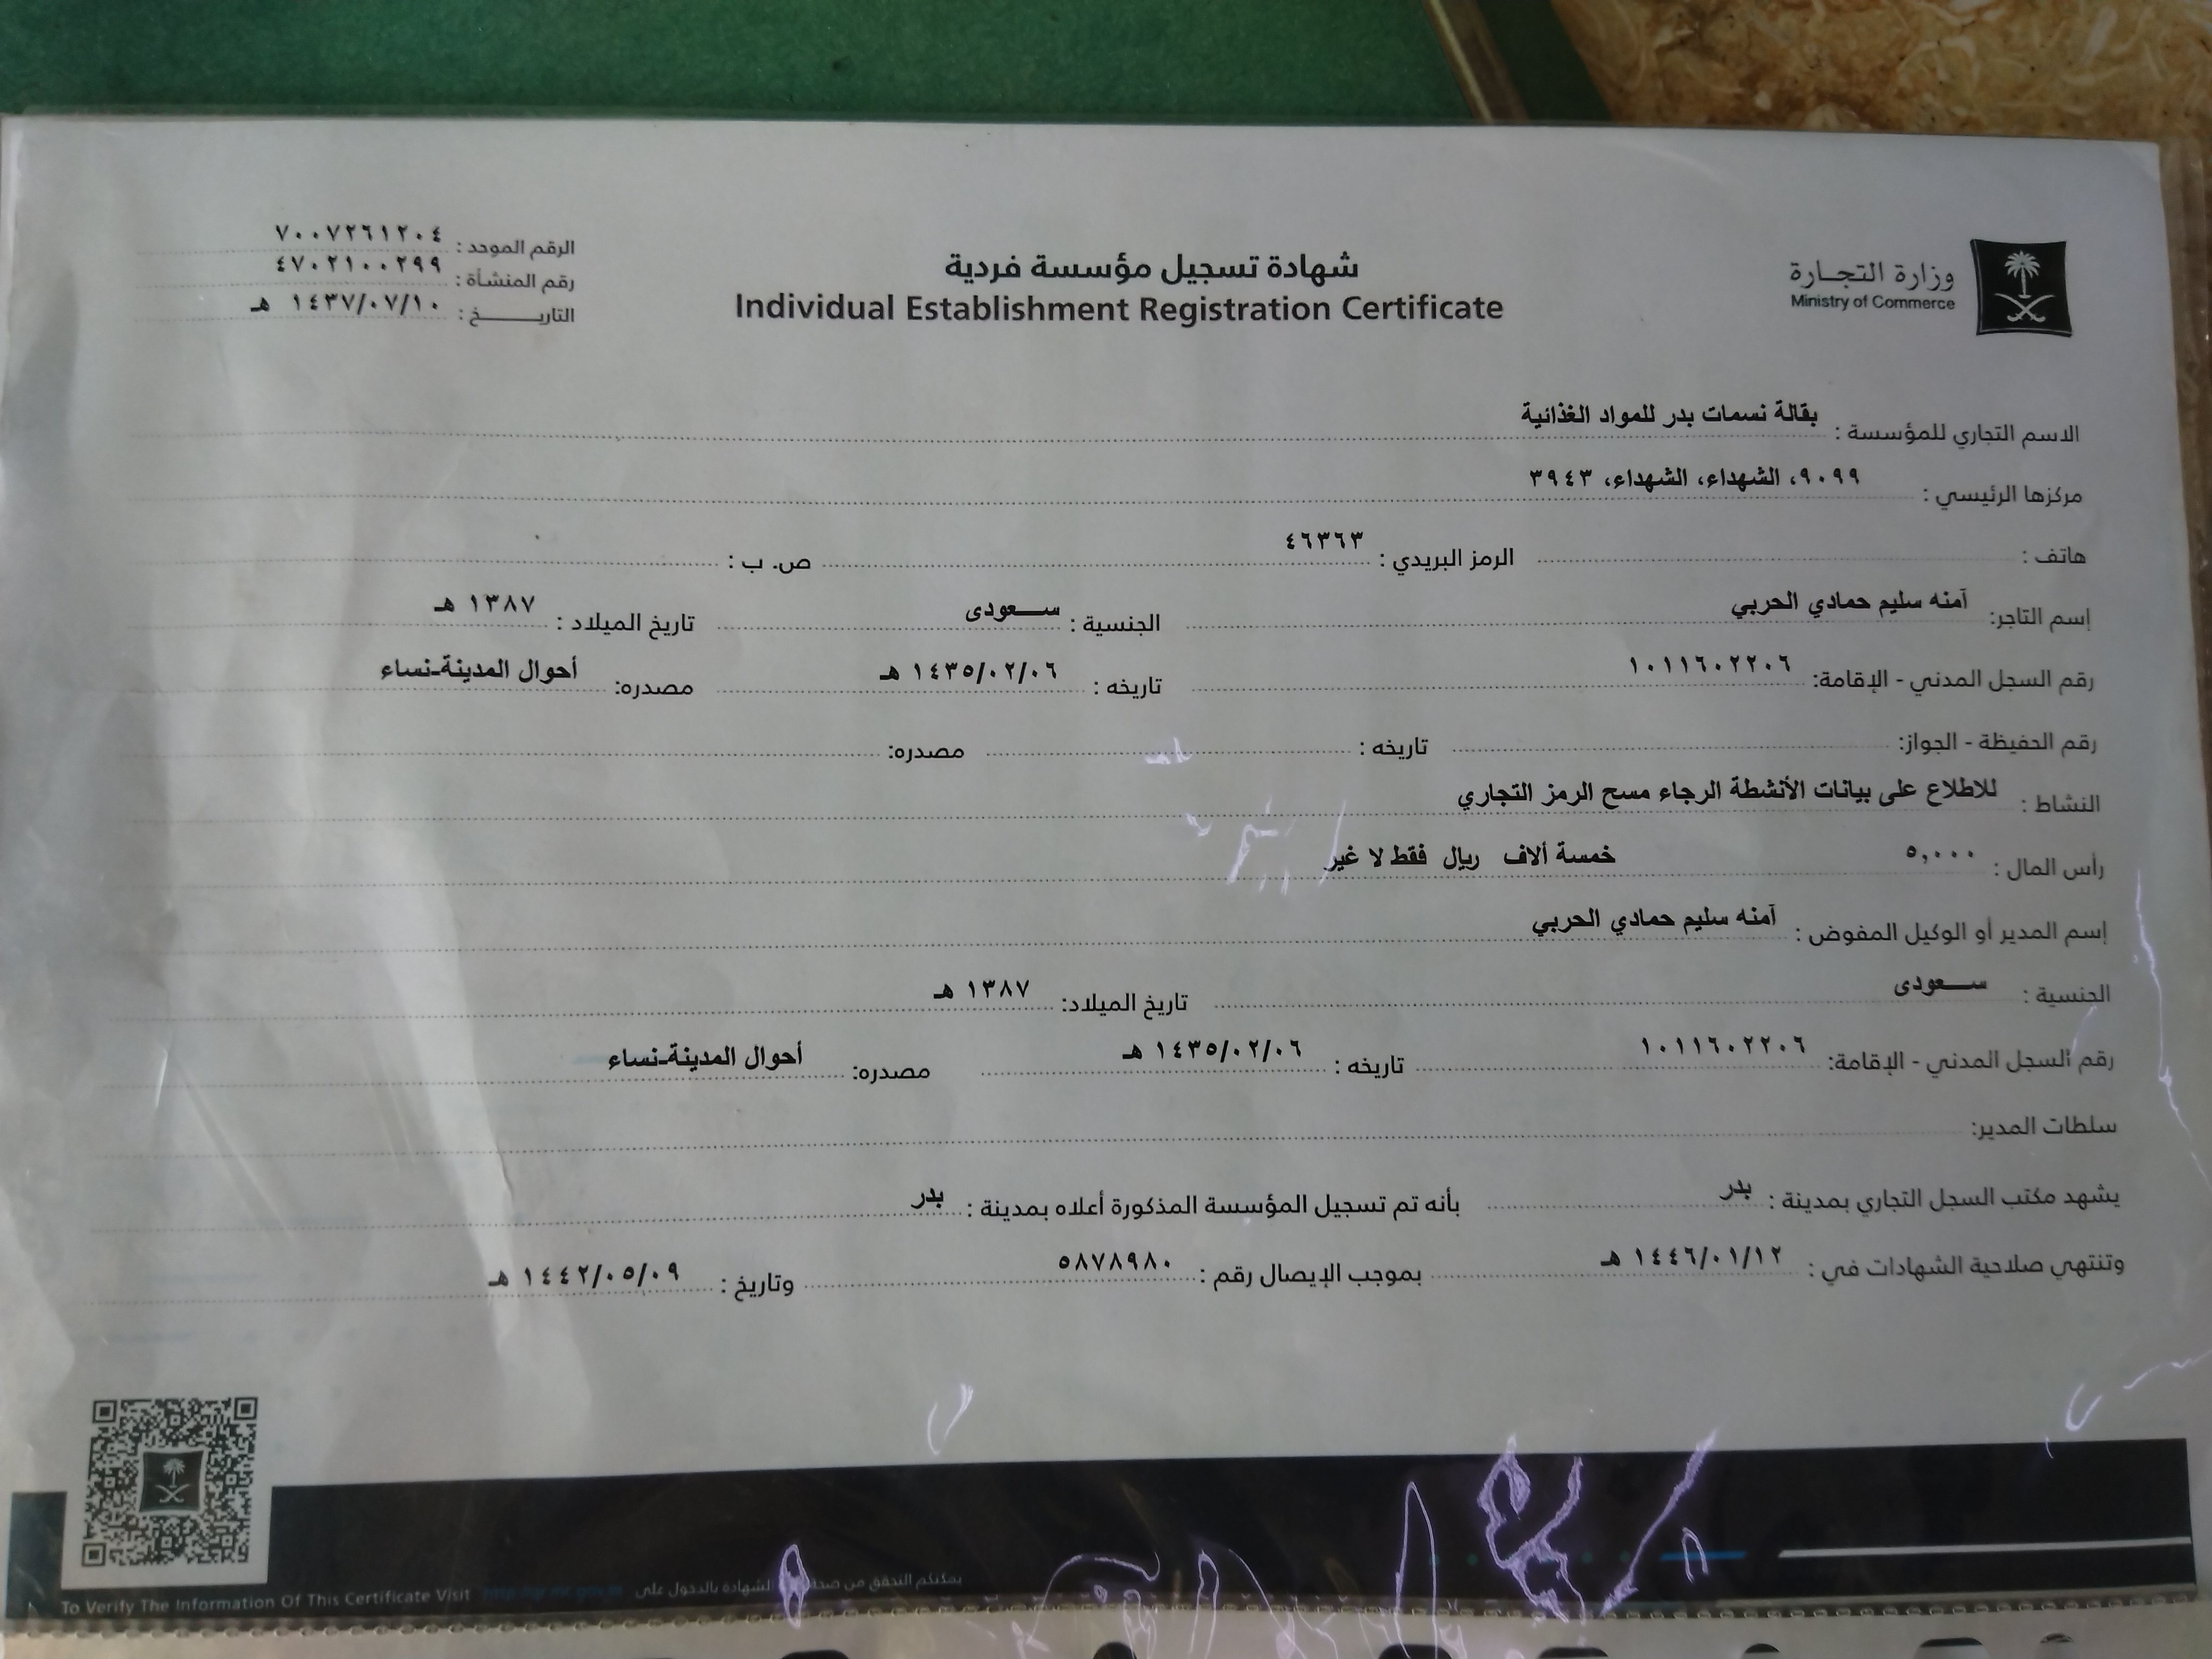 وزارة التجارة
Ministry of Commerce
شهادة تسجيل مؤسسة فردية
Individual Establishment Registration Certificate
الرقم الموحد : ٧٠٠٧٢٦١٢٠٤
رقم المنشأة : ٤٧٠٢١٠٠٢٩٩
التاريـــــخ : ١٤٣٧/٠٧/١٠ هـ
الاسم التجاري للمؤسسة : بقالة نسمات بدر للمواد الغذائية
مركزها الرئيسي : ٩٠٩٩، الشهداء، الشهداء، ٣٩٤٣
هاتف : الرمز البريدي : ٤٦٣٦٣ ص. ب :
إسم التاجر: آمنه سليم حمادي الحربي الجنسية : ســعودى تاريخ الميلاد : ١٣٨٧ هـ
رقم السجل المدني - الإقامة: ١٠١١٦٠٢٢٠٦ تاريخه : ١٤٣٥/٠٢/٠٦ هـ مصدره: أحوال المدينة-نساء
رقم الحفيظة - الجواز: تاريخه : مصدره:
النشاط : للاطلاع على بيانات الأنشطة الرجاء مسح الرمز التجاري
رأس المال : ٥,٠٠٠ خمسة ألاف ريال فقط لا غير
إسم المدير أو الوكيل المفوض : آمنه سليم حمادي الحربي
الجنسية : ســعودى تاريخ الميلاد: ١٣٨٧ هـ
رقم السجل المدني - الإقامة: ١٠١١٦٠٢٢٠٦ تاريخه : ١٤٣٥/٠٢/٠٦ هـ مصدره: أحوال المدينة-نساء
سلطات المدير:
يشهد مكتب السجل التجاري بمدينة : بدر بأنه تم تسجيل المؤسسة المذكورة أعلاه بمدينة : بدر
وتنتهي صلاحية الشهادات في : ١٤٤٦/٠١/١٢ هـ بموجب الإيصال رقم : ٥٨٧٨٩٨٠ وتاريخ : ١٤٤٢/٠٥/٠٩ هـ
يمكنكم التحقق من الشهادة بالدخول على
To Verify The Information Of This Certificate Visit